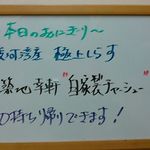 本日のおにぎり〜
駿河湾産 極上しらす
築地幸軒"自家製チャーシュー"
お持ち帰りできます!